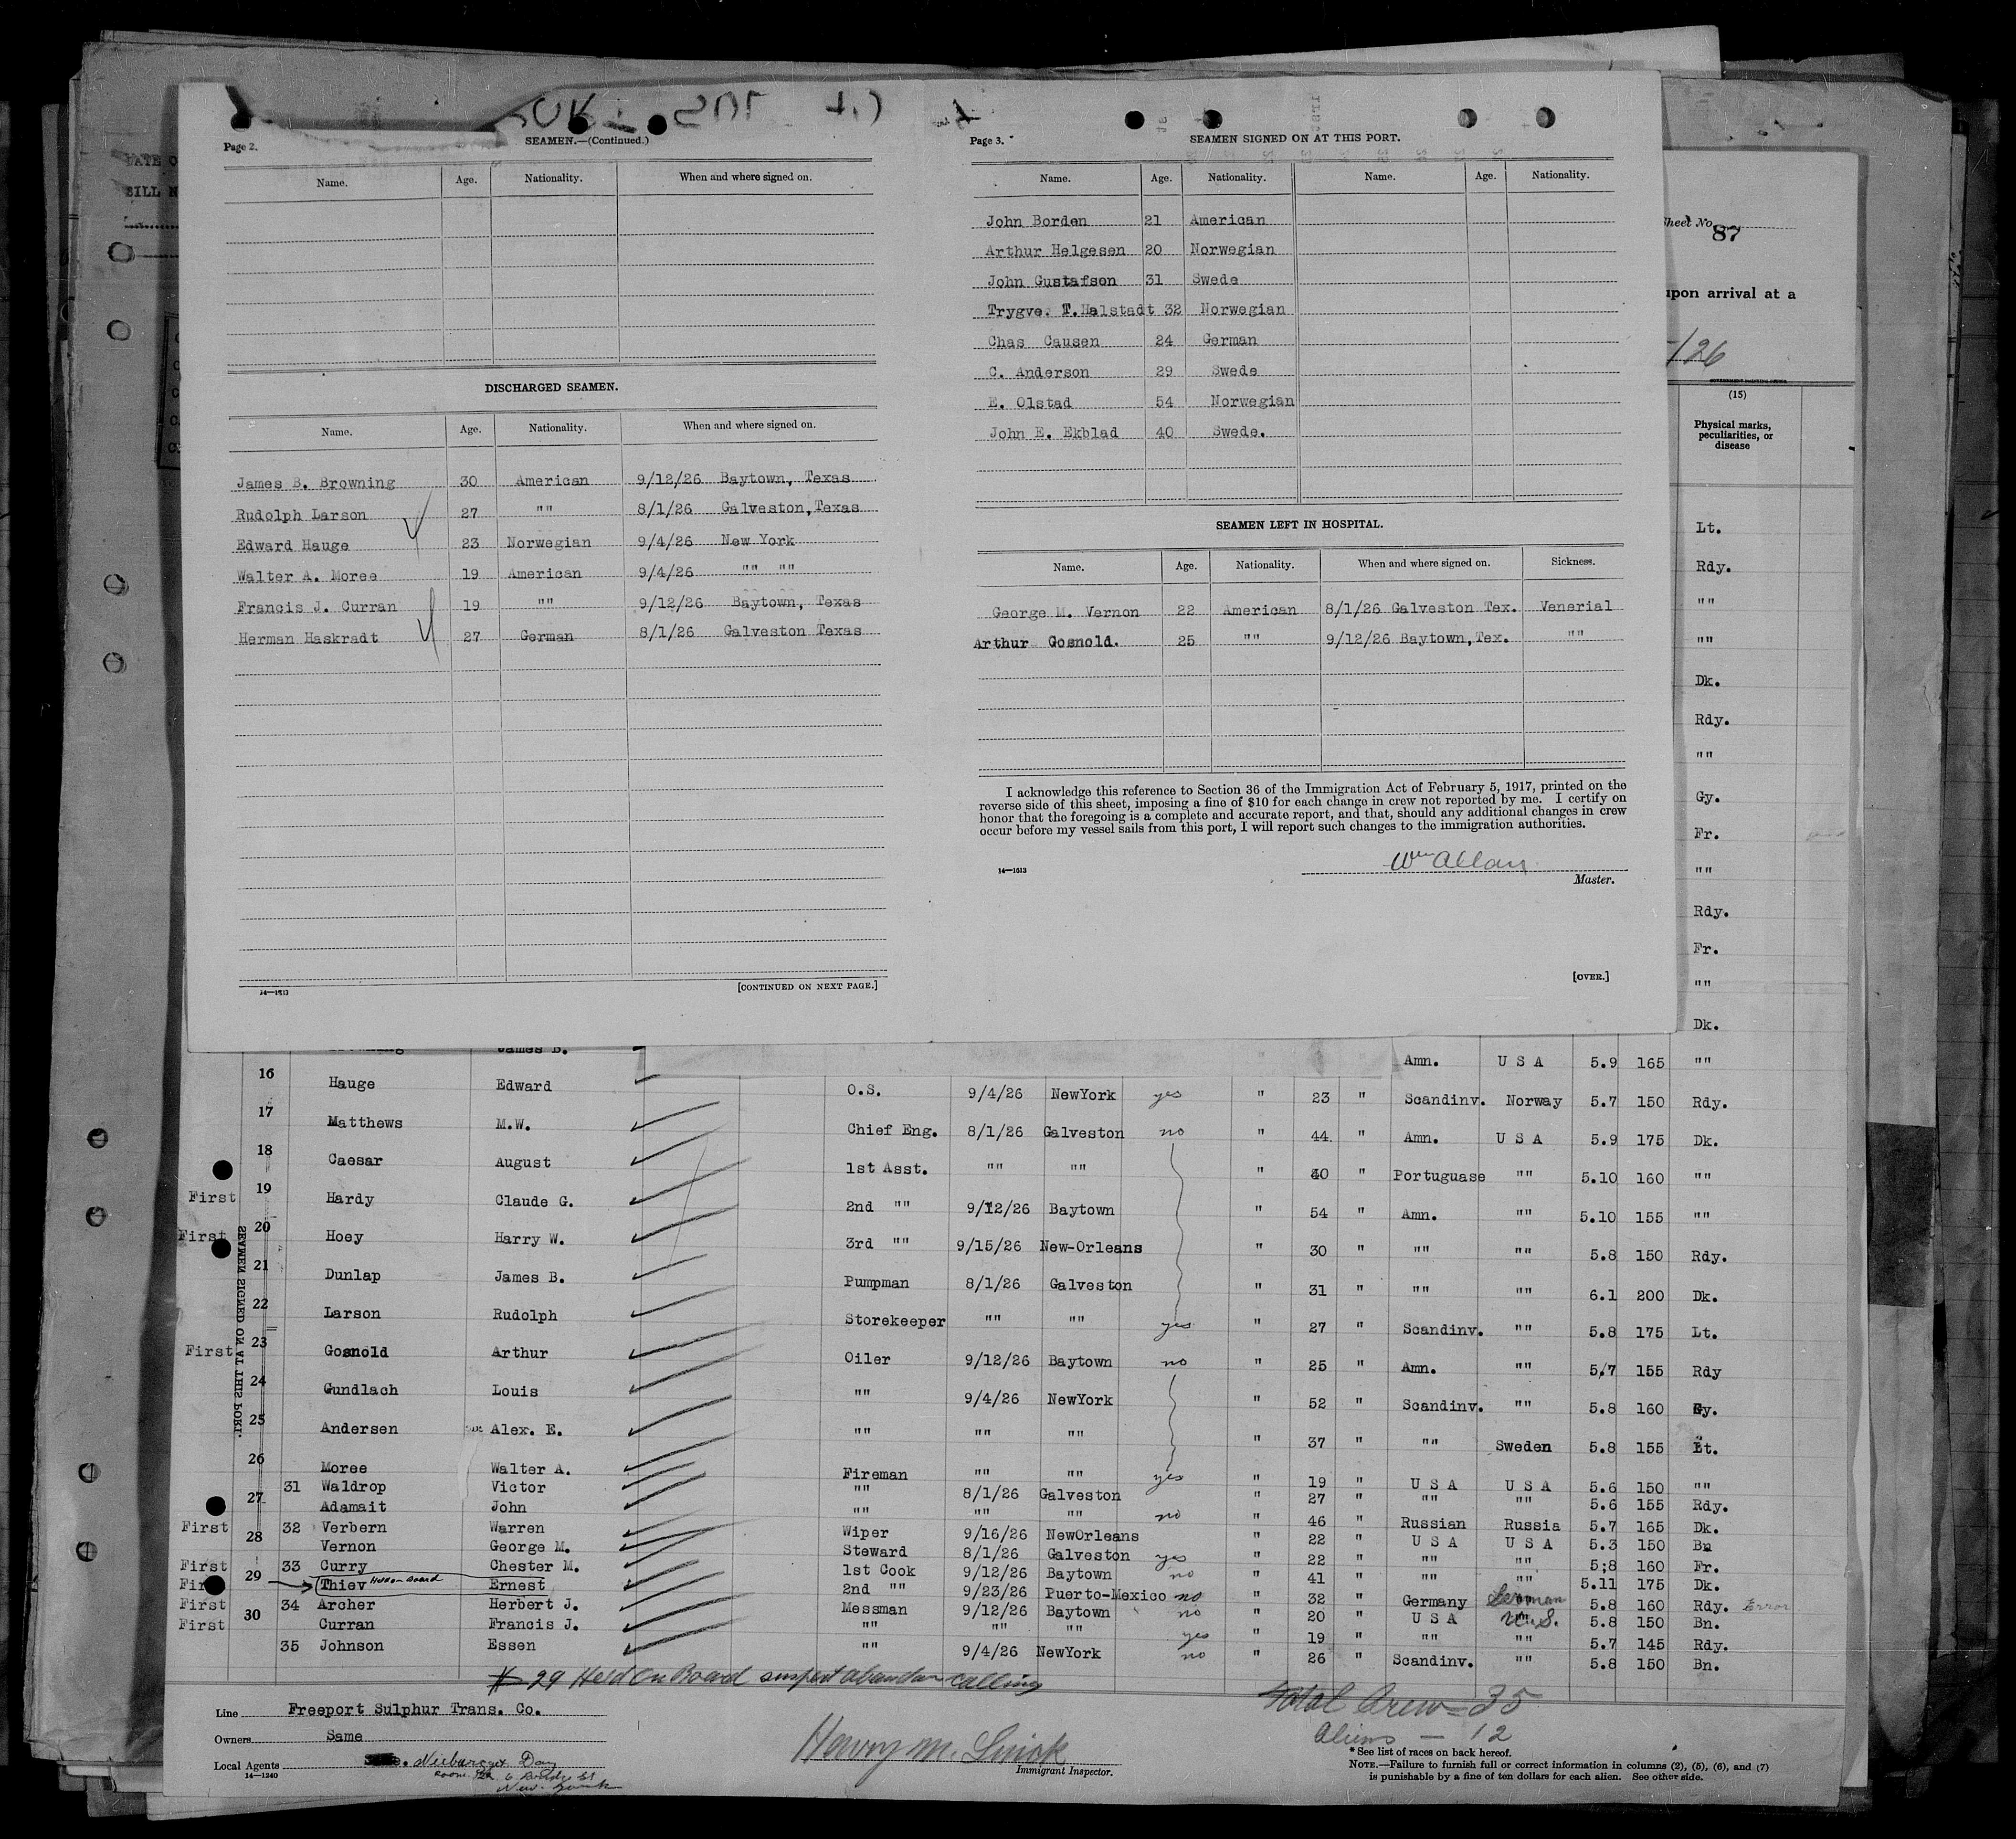 Page 2.
SEAMEN.—(Continued.)
Name. Age. Nationality. When and where signed on.
DISCHARGED SEAMEN.
Name. Age. Nationality. When and where signed on.
James B. Browning 30 American 9/12/26 Baytown, Texas
Rudolph Larson 27 "" 8/1/26 Galveston, Texas
Edward Hauge 23 Norwegian 9/4/26 New York
Walter A. Moree 19 American 9/4/26 "" ""
Francis J. Curran 19 "" 9/12/26 Baytown, Texas
Herman Haskradt 27 German 8/1/26 Galveston Texas
14—1513
[CONTINUED ON NEXT PAGE.]
Page 3.
SEAMEN SIGNED ON AT THIS PORT.
Name. Age. Nationality. Name. Age. Nationality.
John Borden 21 American
Arthur Helgesen 20 Norwegian
John Gustafson 31 Swede
Trygve. T. Halstadt 32 Norwegian
Chas Causen 24 German
C. Anderson 29 Swede
E. Olstad 54 Norwegian
John E. Ekblad 40 Swede.
SEAMEN LEFT IN HOSPITAL.
Name. Age. Nationality. When and where signed on. Sickness.
George M. Vernon 22 American 8/1/26 Galveston Tex. Venerial
Arthur Gosnold. 25 "" 9/12/26 Baytown, Tex. ""
I acknowledge this reference to Section 36 of the Immigration Act of February 5, 1917, printed on the
reverse side of this sheet, imposing a fine of $10 for each change in crew not reported by me. I certify on
honor that the foregoing is a complete and accurate report, and that, should any additional changes in crew
occur before my vessel sails from this port, I will report such changes to the immigration authorities.
Wm Allan
14—1513
Master.
[OVER.]
Sheet No. 87
upon arrival at a
/26
(15)
Physical marks,
peculiarities, or
disease
Lt.
Rdy.
""
""
Dk.
Rdy.
""
Gy.
Fr.
""
Rdy.
Fr.
""
Dk.
James B. Amn. U S A 5.9 165 ""
16 Hauge Edward O.S. 9/4/26 NewYork yes " 23 " Scandinv. Norway 5.7 150 Rdy.
17 Matthews M.W. Chief Eng. 8/1/26 Galveston no " 44 " Amn. U S A 5.9 175 Dk.
18 Caesar August 1st Asst. "" "" " 40 " Portuguase "" 5.10 160 ""
First 19 Hardy Claude G. 2nd "" 9/12/26 Baytown " 54 " Amn. "" 5.10 155 ""
First 20 Hoey Harry W. 3rd "" 9/15/26 New-Orleans " 30 " "" "" 5.8 150 Rdy.
21 Dunlap James B. Pumpman 8/1/26 Galveston " 31 " "" "" 6.1 200 Dk.
22 Larson Rudolph Storekeeper "" "" yes " 27 " Scandinv. "" 5.8 175 Lt.
First 23 Gosnold Arthur Oiler 9/12/26 Baytown no " 25 " Amn. "" 5/7 155 Rdy
24 Gundlach Louis "" 9/4/26 NewYork " 52 " Scandinv. "" 5.8 160 Gy.
25 Andersen Alex. E. "" "" "" " 37 " "" Sweden 5.8 155 Lt.
26 Moree Walter A. Fireman "" "" yes " 19 " U S A U S A 5.6 150 ""
31 Waldrop Victor "" 8/1/26 Galveston " 27 " "" "" 5.6 155 Rdy.
27 Adamait John "" "" "" no " 46 " Russian Russia 5.7 165 Dk.
First 32 Verbern Warren Wiper 9/16/26 NewOrleans " 22 " U S A U S A 5.3 150 Bn
28 Vernon George M. Steward 8/1/26 Galveston yes " 22 " "" "" 5;8 160 Fr.
First 33 Curry Chester M. 1st Cook 9/12/26 Baytown no " 41 " "" "" 5.11 175 Dk.
First 29 Thiev Held on Board Ernest 2nd "" 9/23/26 Puerto-Mexico no " 32 " Germany German 5.8 160 Rdy. Error
First 34 Archer Herbert J. Messman 9/12/26 Baytown no " 20 " U S A U.S. 5.8 150 Bn.
First 30 Curran Francis J. "" "" "" yes " 19 " "" "" 5.7 145 Rdy.
35 Johnson Essen "" 9/4/26 NewYork no " 26 " Scandinv. "" 5.8 150 Bn.
SEAMEN SIGNED ON AT THIS PORT.
# 29 Held On Board suspect abandon calling
Total Crew = 35
Aliens — 12
Line Freeport Sulphur Trans. Co.
Owners Same
Local Agents
New York
14—1240
Immigrant Inspector.
* See list of races on back hereof.
NOTE.—Failure to furnish full or correct information in columns (2), (5), (6), and (7)
is punishable by a fine of ten dollars for each alien. See other side.